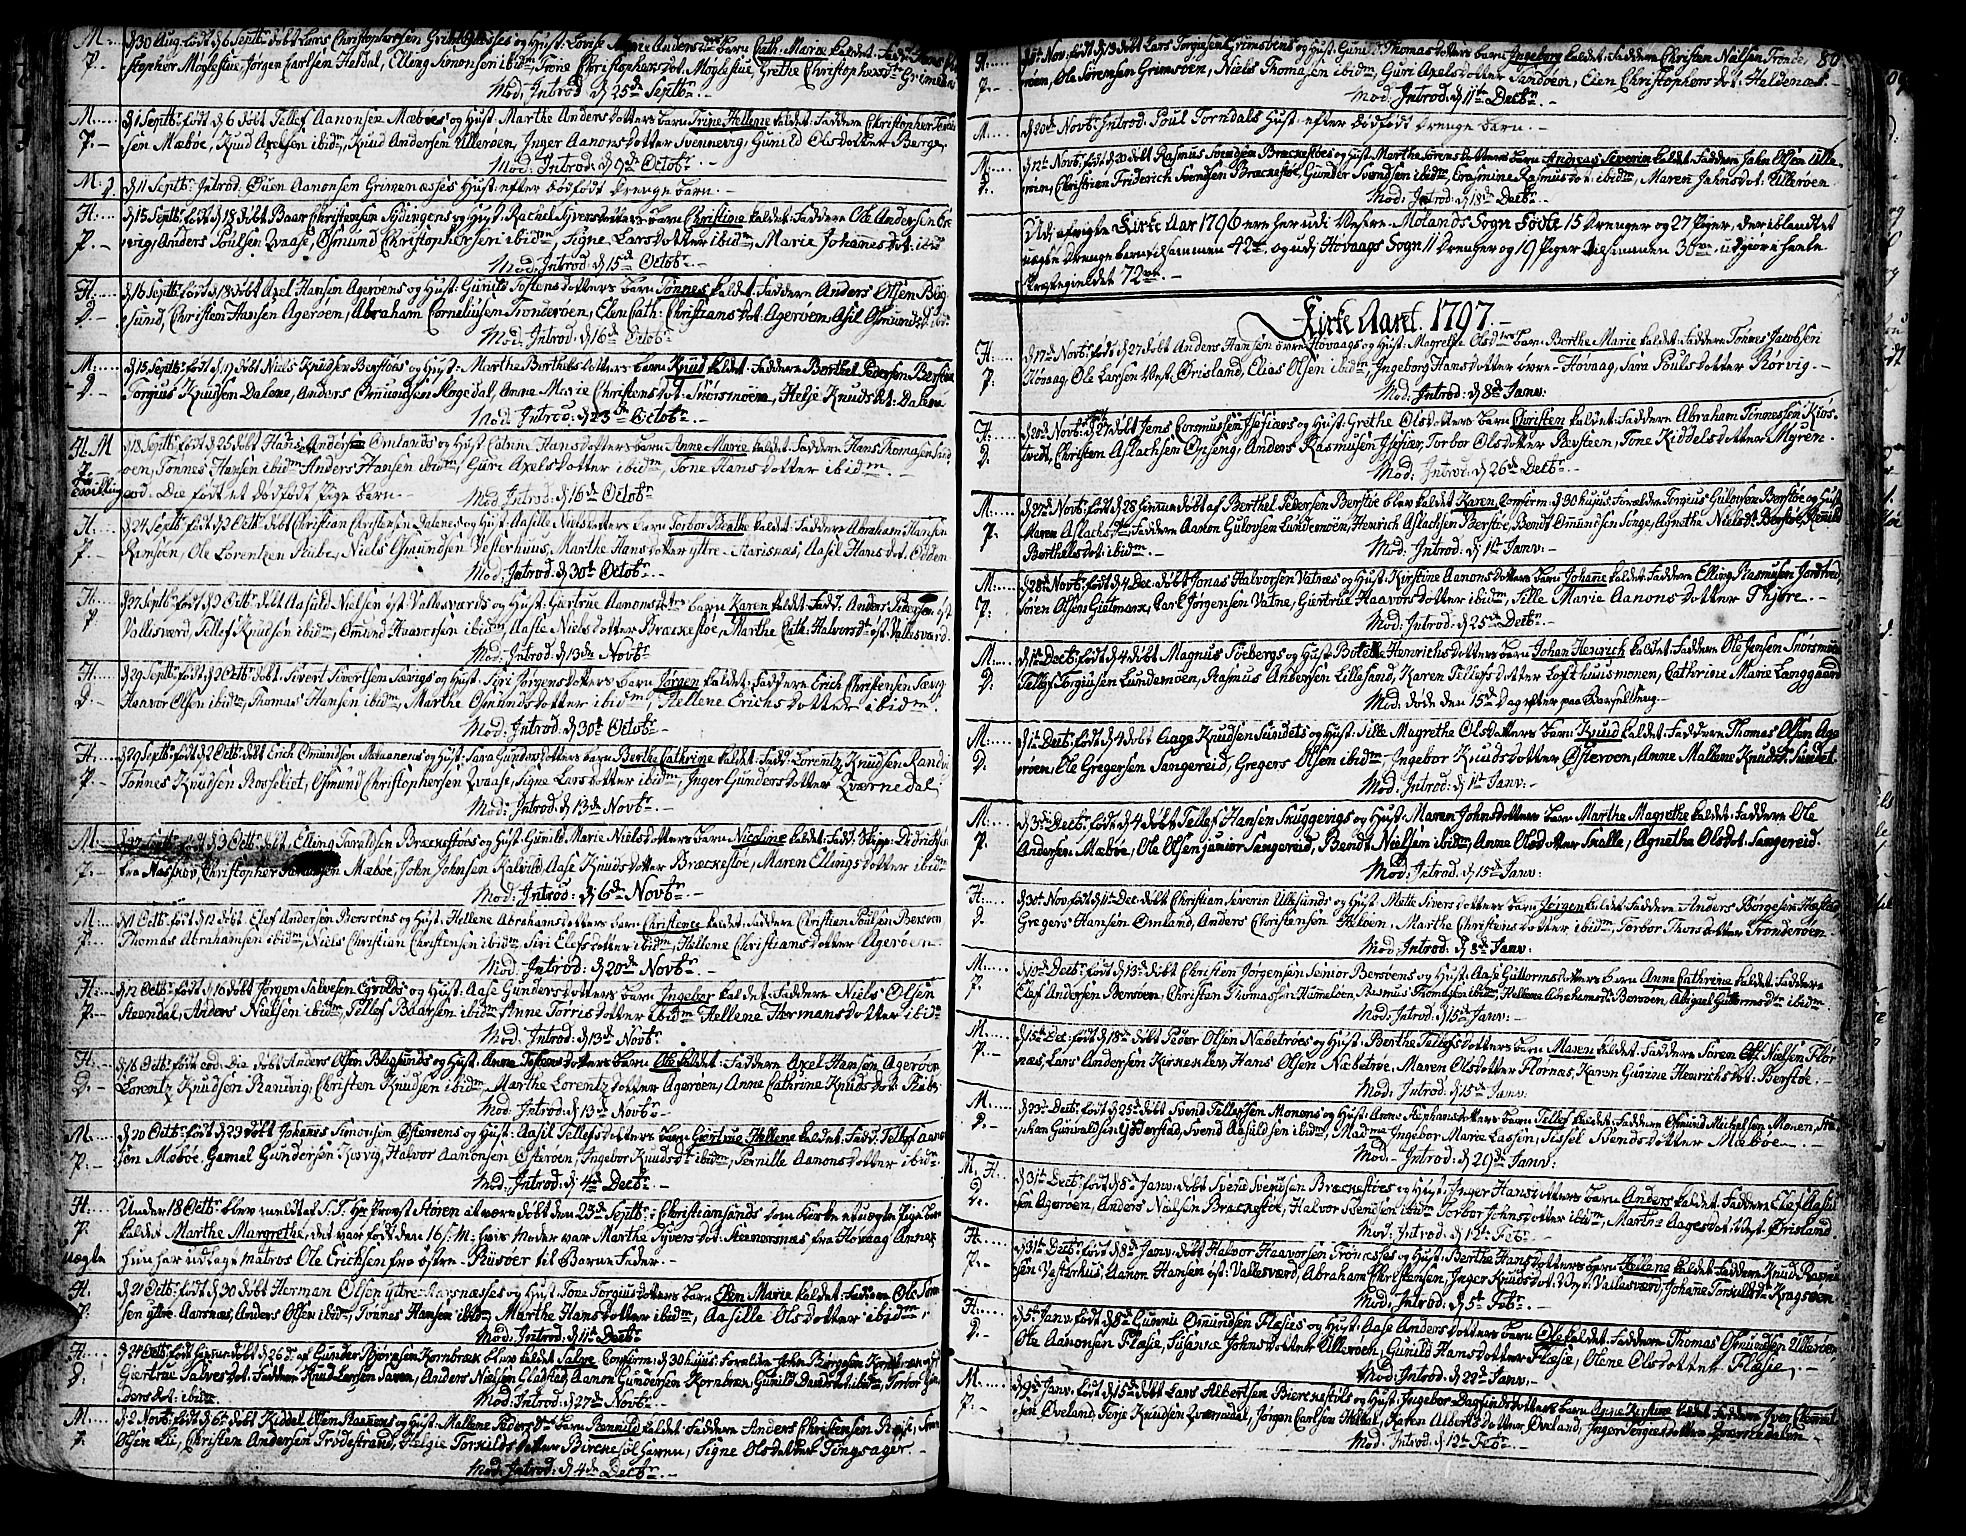 M. d 30 Aug: født d 6 Septbr døbt Lars Christophersen Grimenæsses og Hust: Lovise Marie Andersdtr barn Cath: Marie kaldet: Fadd:
P. stopher Møglestue, Jørgen Carlsen Heldal, Elleng Simonsen ibidm, Tone Christophersdot: Møglestue, Grethe Christophersd: Grimenæs
Mod: Introd d 25de Septbr. -
M. d 1 Septbr født d 6 døbt Tellef Aanonsen Mæbøes og Hust: Marthe Anders dotters barn Trine Hellene kaldet: Faddere Christopher
P. sen Mæbøe, Knud Axelsen ibidm, Knud Andersen Ulløen, Inger Aanonsdotter Svennevig, Gunild Olsdotter Berge,
Mod: Introd d 9de Octobr. -
M. D. d 11 Septbr: Introd. Ouen Aanonsen Grimenæsses Hust: efter dødfødt drenge barn. -
H. d 15 Septbr: født d 18 døbt Baar Christensen Hydingens og Hust: Rachel Syversdotters barn Christine kaldet: Faddere Ole Andersen
P. vig, Anders Poulsen Qvaase, Osmund Christophersen ibidm, Signe Larsdotter ibidm, Marie Johannesdot: ibid
Mod: Introd. d 15de Octobr. -
H. d 16 Septbr: født d 18 døbt Axel Hansen Agerøens og Hust: Gunild Tostensdotters barn Tønnes kaldet: Faddere Anders Olsen Blig
D. sund, Christen Hansen Agerøen, Abraham Corneliusen Tronderøen, Elen Cath: Christiansdot: Agerøen, Asil Osmundsdt: ibid
Mod: Introd: d 16de Octobr
M. d 15 Septbr: født d 19 døbt Niels Knudsen Berstøes og Hust: Marthe Berthelsdotters barn Knud kaldet: Faddere Berthel Pedersen Berstøe
D. Torgius Knudsen Dalene, Anders Omundsen Mogedal, Anne Marie Christensdot: Snørsmoen, Helje Knudsdot: Dalene
Mod: Introd: d 23de Octobr.
H. M d 18 Septbr: født d 25 døbt Hans Andersen Omlands og Hust: Hansdotters barn Anne Marie kaldet: Faddere Hans Thomasen Sand
P. øen, Tønnes Hansen ibidm Anders Hansen ibidm, Guri Axelsdotter ibidm, Tone Hansdotter ibidm. -
Tvilling eod: Die født et dødfødt Pige barn. - Mod: Introd: d 16de Octobr
H. d 24 Septbr: født d 2 Octbr: døbt Christian Christensen Dalenes og Hust: Aasille Nielsdotters barn Torbor Grethe kaldet: Faddere Abraham Hansen
P. Ramsøen, Ole Lorentzen Ribe, Niels Osmundsen Vesterhuus, Marthe Hansdotter yttre Aarisnæs, Aasil Hansdot: Odden
Mod: Introd: d 30te Octobr. -
H. d 27 Septbr: født d 2 Octbr: døbt Aasuld Nielsen øst: Vallesværds og Hust: Giertrue Aanonsdotters barn Karen kaldet: Fadd: Anders Pedersen øst
P. Vallisværd, Tellef Knudsen ibidm, Omund Haavorsen ibidm, Aaste Nielsdotter Brækkestøe, Marthe Cath: Halvorsdt: øst: Vallesværd
Mod: Introd: d 13de Novbr
H. d 29 Septbr: født d 2 Octbr: døbt Sivert Sivertsen Sævigs og Hust: Siri Jørgensdotters barn Jørgen kaldet: Faddere Erich Christensen Sævig
D. Haavor Olsen ibidm, Thomas Hansen ibidm, Marthe Osmundsdotter ibidm, Hellene Erichsdotter ibidm.
Mod: Introd: d 30te Octobr. -
H. d 29 Septbr: født d 2 Octbr: døbt Erich Omundsen og Hust: Sara Gundersdotters barn Berthe Cathrine kaldet: Fadd: Lorentz Knudsen Randvi
P. Tønnes Knudsen Rosseliet, Osmund Christophersen Qvaase, Signe Larsdotter ibidm, Inger Gundersdotter Qværnedal.
Mod: Introd: d 13de Novbr. -
M. d 3 Octbr: døbt Elling Taraldsen Brækkestøes og Hust: Gunild Marie Nielsdotters barn Nicoline kaldet: Fadd: Skipp:
P. fra Naskov, Christopher Mæbøe, John Johnsen Kalvild, Aase Knudsdotter Brækkestøe, Maren Ellingsdotter ibidm
Mod: Introd: d 6te Novbr. -
M. født d 12 døbt Elef Andersen Bersøens og Hust: Hellene Abrahamsdotters barn Christence kaldet: Faddere Christien Poulsen Bersøen
P. Thomas Abrahamsen ibidm, Niels Christian Christensen ibidm, Siri Elefsdotter ibidm, Hellene Christiansdotter Agerøen. -
Mod: Introd: d 20de Novbr. -
H. d 12 Octbr: født d 16 døbt Jørgen Salvesen og Hust: Aase Gundersdotters barn Ingebor kaldet: Faddere Niels Olsen
P. Steendal, Anders Nielsen ibidm, Tellef Baarsen ibidm Anne Torrisdotter ibidm Hellene Hermansdotter ibidm
Mod: Introd: d 13de Novbr
H. d 16 Octbr: født eod: Die døbt Anders Olsen Bligsunds og Hust: Anne barn Ole kaldet: Faddere Axel Hansen Agerøen
D. Lorentz Knudsen Randvig, Christen Knudsen ibidm, Marthe Lorentzdotter Agerøen, Anne Cathrine Knudsdot:
Mod: Introd: d 13de Novbr. -
M. d 20 Octbr: født d 23 døbt Johanes Simonsen Østerøens og Hust: Aasil Tellefsdotters barn Giertrue Hellene kaldet: Fadd: Tellef Aanon
P. sen Mæbøe, Gamel Gundersen Kosvig, Halvor Aanonsen Østerøen, Ingebor Knudsdt: ibidm, Pernille Aanonsdotter ibidm.
Mod: Introd: d 4de Decbr. -
H. Under 18 Octbr: blev meldet Støren at være døbt den 25de Septbr: i Christiansands Dom Kirke et uægte Pige barn
P. kaldet Marthe Margrethe, det var født den 16 hvis Moder var Marthe Syversdot: fra Høvaag Annex
uægte hun har udlagt matros Ole Erichsen fra østre Riisøer til Barne Fader.
H. d 21 Octbr: født d 30 døbt Herman Olsen yttre Aarsnæsses og Hust: Tone Torgiusdotters barn Elen Marie kaldet: Faddere Ole Tom
P. sen yttre Aarsnæs, Anders Olsen ibidm, Tønnes Hansen ibidm, Marthe Hansdotter ibidm, Aasille Olsdotter ibidm.
Mod: Introd: d 11te Decbr
H. d 24 Octbr: født hiemedøbt d 26 d: af Gunder Biørnsen Kornbræk blev kaldet Salve Confirm: d 30 hujus: Forældre John Børgesen Kornbræk og
D. Giertrue Salvesdot: Faddere Knud Larsen Saven, Anders Nielsen Gladstad, Aanon Gundersen Kornbræk, Gunild ibidm, Torbor
dersdot: ibidm Mod: Introd: d 27de Novbr. -
M. d 2 Novbr: født d 6te døbt Kiddel Olsen og Hust: Mallene barn Ronnild kaldet: Faddere Anders Christensen
P. Olsen Lii, Christen Andersen Frodestrand, Helgie Torkildsdotter Birkesølhaven, Signe Olsdotter Tingsager. -
Mod: Introd: d 4de Decbr. -

80
H. Nov: født d 13 døbt Lars Torgiusen Grimsøens og Hust: Guni Thomasdotters barn Ingeborg kaldet: Faddere Christen Nielsen Tronde
P. røen, Ole Sørensen Grimsøen, Niels Thomasen ibidm, Guri Axelsdotter Sandøen, Elen Christophersdot: Heldenæs. -
Mod: Introd d 11te Decbr. -
M. d 20de Novbr: Introd: Poul Torndals Hust: efter dødfødt drenge barn. -
M. d 12te Novbr: født d 20 døbt Rasmus Svendsen Brækkestøes og Hust: Marthe Sørensdotters barn Andreas Severin kaldet: Faddere Jahn Olsen Ulle
D. røen, Christien Friderich Svendsen Brækestøe, Gunder Svendsen ibidm, Erasmine Rasmusdot: ibidm, Maren Jahnsdot: Ullerøen
Mod: Introd: d 18de Decbr. -
Udi afvigte Kirke Aar 1796 ere her udi Vestre Molands Sogn Fødte 15 Drenger og 27 Piger, der iblandt
uægte Drenge barn tilsammen 42de, og udi Høvaags Sogn 11 Drenger og 19 Piger tilsammen 30ve. udgiør i heele
Præstegieldet 72ve. -
Kirke Aaret 1797. -
H. d 17de Novbr: født d 27 døbt Anders Hansen øvre Høvaags og Hust: Magrethe Olsdtrs barn Berthe Marie kaldet: Faddere Tønnes Jacobsen
P. Høvaag, Ole Larsen Vest: Ørisland, Elias Olsen ibidm, Ingeborg Hansdotter øvre Høvaag, Sara Poulsdotter Kosvig. -
Mod: Introd: d 8de Janv:
H. d 20de Novbr: d 27 døbt Jens Corsmussen Isefiærs og Hust: Grethe Olsdotters barn Christen kaldet: Faddere Abraham Tønnessen Kiøs
D. tvedt, Christen Aslachsen Opseng, Anders Rasmusen Isefiær, Torbor Olsdotter Bersteen, Tone Kiddelsdotter Myren.
Mod: Introd: d 26de Decbr. -
M. d 27de Novbr: født d 28 hiemmedøbt af Berthel Pedersen Berstøe blev kaldet Karen, Confirm: d 30 hujus: Forældre Torgius Gulovsen Berstøe og Hust
P. Maren Aslachsdtr: Faddere Aanon Gulovsen Lundemoen, Henrich Aslachsen Berstøe, Bendt Omundsen Songe, Agnethe Nielsdt: Berstøe, Ronnild
Berthelsdot: ibidm. - Mod: Introd: d 1te Janv: -
M. d 28de Novbr: født d 4 Dec: døbt Jonas Halvorsen Vatnes og Hust: Kirstine Aanonsdotters barn Johanne kaldet: Faddere Elling Rasmusen
P. Søren Olsen Gitmark, Carl Jørgensen Vatne, Giertrue Haavorsdotter ibidm, Sille Marie Aanonsdotter Thjore. -
Mod: Introd: d 25de Decbr: -
M. d 1te Decbr: født d 4 døbt Magnus Soebergs og Hust: Botelle Henrichsdotters barn Johan Henrich kaldet: Faddere Ole Jensen Snørsmoen
D. Tellef Torgiusen Lundemoen, Rasmus Andersen Lillesand, Karen Tellefsdotter Lofthuusmonen, Cathrine Marie Langgaard
Mod: døde den 15de Dag efter paa Barselseng. -
M. d 1te Decbr: født d 4 døbt Aage Knudsen Sundets og Hust: Sille Magrethe Olsdotters barn Knud kaldet: Faddere Thomas Olsen Age
D. røen, Ole Gregersen Sangereid, Gregers Olsen ibidm, Ingebor Knudsdotter Østerøen, Anne Mallene Knudsdt: Sundet
Mod: Introd: d 1te Janv:
M. d 3de Decbr: født d 4 døbt Tellef Hansen Skuggevigs og Hust: Maren Johnsdotters barn Marthe Magrethe kaldet: Faddere Ole
P. Andersen Mæbøe, Ole Olsen junior Sangereid, Bendt Nielsen ibidm, Anne Olsdotter Skalle, Agnethe Olsdot: Sangereid.
Mod: Introd: d 15de Janv:
H. d 30te Nov: født d 11te Dec: døbt Christian Severin Ulvesunds og Hust: Mette Siversdotters barn Jørgen kaldet: Faddere Anders Børgesen
D. Gregers Hansen Omland, Anders Christensen Heløen, Marthe Christensdotter ibidm, Torbor Thorsdotter Tronderøen. -
Mod: Introd: d 8de Janv:
M. d 10de Decbr: født d 13de døbt Christen Jørgensen Senior Bersøens og Hust: Aase Guttormsdotters barn Anne Cathrine kaldet: Faddere
P. Elef Andersen Bersøen, Christen Thomassen Humleløen, Rasmus Thomasen ibidm, Hellene Abrahamsdt: Bersøen, Abigael Guttormsdtr ibidm
Mod: Introd: d 15de Janv:
M. d 15de Dec: født d 18de døbt Peder Olsen Næbetrøes og Hust: Berthe Tellefsdotters barn Maren kaldet: Faddere Søren Ole Nielsen Flør
P. næs, Lars Andersen Kirkekler, Hans Olsen Næbetrøe, Maren Olsdotter Flørnæs, Karen Gurine Henrichsdot: Berstøe. -
Mod: Introd: d 15de Janv:
M. d 23de Decbr: født d 25de døbt Svend Tellefsen Monens og Hust: Anne Stephansdotters barn Tellef kaldet: Faddere Osmund Michelsen Monen,
D. phan Gunvaldsen Giødderstad, Svend Aasuldsen ibidm, Madme Ingebor Maria Lassen, Sissel Bendsdotter Mæbøe. -
Mod: Introd: d 29de Janv:
M. H. d 31te Decbr: født d 8de Janv: døbt Svend Svendsen Brækkestøes og Hust: Inger Hansdotters barn Anders kaldet: Faddere Elef Aasul
D. sen Agerøen, Anders Nielsen Brækkestøe, Halvor Svendsen ibidm Torbor Johnsdotter ibidm, Martine Aagesdot: Vest: Ørisland.
Mod: Introd: d 12te Febr. -
H. d 31te Decbr: født d 8de Janv: døbt Halvor Haavorsen Trønæsses og Hust: Berthe Hansdotters barn Hellene kaldet: Faddere Knud Rasmu
P. sen Vesterhus, Aanon Hansen øst: Vallesværd, Abraham Christensen, Inger Knudsdot: Vest: Vallesværd, Johanne Torkilsdtr Kragsøen
Mod: Introd: d 5te Febr. -
H. d 5te Janv: født d 8de Gunnu Omundsen Flæsies og Hust: Aase Andersdotters barn Ole kaldet: Faddere Thomas Omundsen Ullerøen
D. Ole Aanonsen Flæsie, Susanne Johnsdotter Ullerøen, Gunild Hansdotter Flæsie, Olene Olsdotter Flæsie, -
Mod: Introd: d 22de Janv:
M. d 9de Janv: født d 15de døbt Lars Albertsen Bierkestøls og Hust: Ingebor Dagfindsdotters barn Anne Kirstine kaldet: Faddere Iver
P. sen Øveland, Terje Knudsen Qværnedal, Jørgen Carlsen Heldal, Karen Albertsdotter Øveland, Inger Tergesdotter Qværnedalen
Mod: Introd: d 12te Febr. -